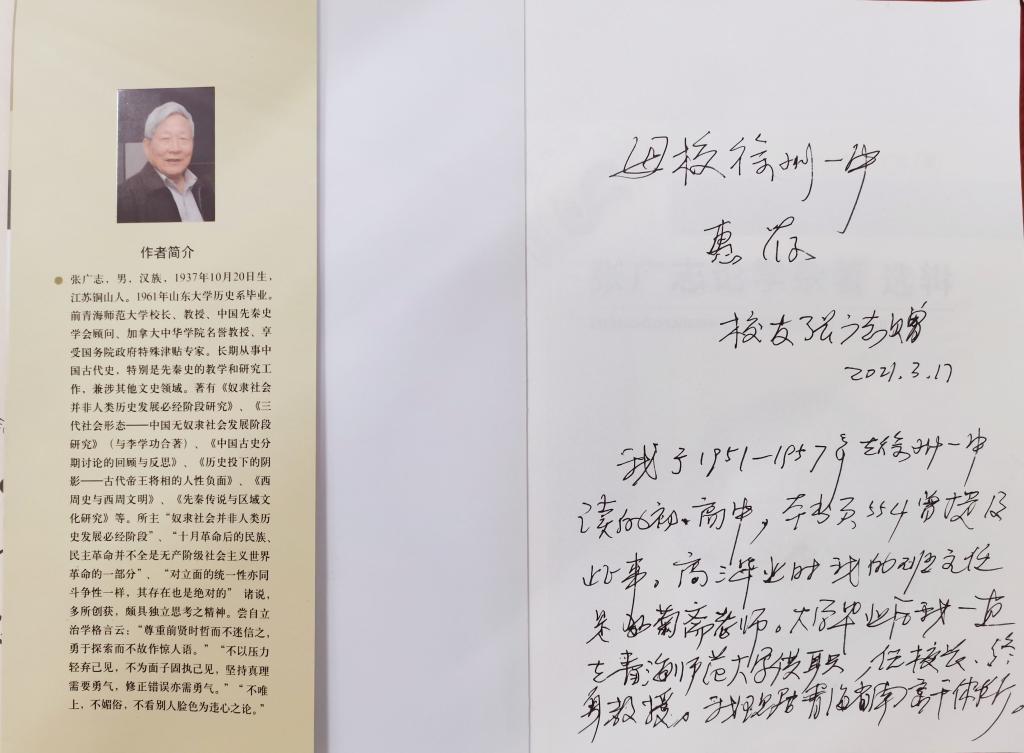 作者简介
张广志，男，汉族，1937年10月20日生，
江苏铜山人。1961年山东大学历史系毕业。
前青海师范大学校长、教授、中国先秦史
学会顾问、加拿大中华学院名誉教授、享
受国务院政府特殊津贴专家。长期从事中
国古代史，特别是先秦史的教学和研究工
作，兼涉其他文史领域。著有《奴隶社会
并非人类历史发展必经阶段研究》、《三
代社会形态——中国无奴隶社会发展阶段
研究》（与李学功合著）、《中国古史分
期讨论的回顾与反思》、《历史投下的阴
影——古代帝王将相的人性负面》、《西
周史与西周文明》、《先秦传说与区域文
化研究》等。所主“奴隶社会并非人类历
史发展必经阶段”、“十月革命后的民族、
民主革命并不全是无产阶级社会主义世界
革命的一部分”、“对立面的统一性亦同
斗争性一样，其存在也是绝对的” 诸说，
多所创获，颇具独立思考之精神。尝自立
治学格言云：“尊重前贤时哲而不迷信之，
勇于探索而不故作惊人语。”“不以压力
轻弃己见，不为面子固执己见，坚持真理
需要勇气，修正错误亦需勇气。”“不唯
上，不媚俗，不看别人脸色为违心之论。”
母校徐州一中
惠存
校友张广志赠
2021.3.17
我于1951—1957年在徐州一中
读的初、高中，本书页554曾提及
此事。高三毕业时我的班主任
是 菊斋老师。大学毕业后我一直
在青海师范大学供职，任校长、终
身教授。我现居青海省 高干休所。